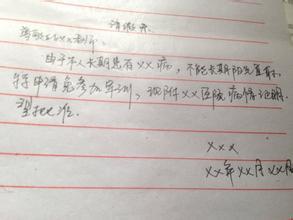 请假条
尊敬的xx老师:
由于本人长期患有XX病,不能长期阳光直射。
特申请免参加军训,现附XX医院病情证明。
望批准
XXX
XX年XX月XX日